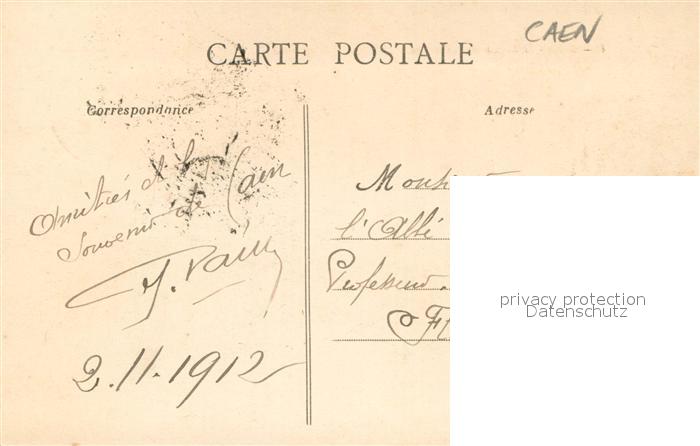 CAEN
CARTE POSTALE
Correspondance
Adresse
Amitiés et
Souvenir de Caen
2.11.1912
l'Abbé
Professeur
privacy protection
Datenschutz